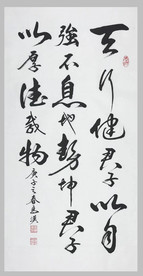 天行健君子以自
強不息地勢坤君子
以厚德載物
庚子之春